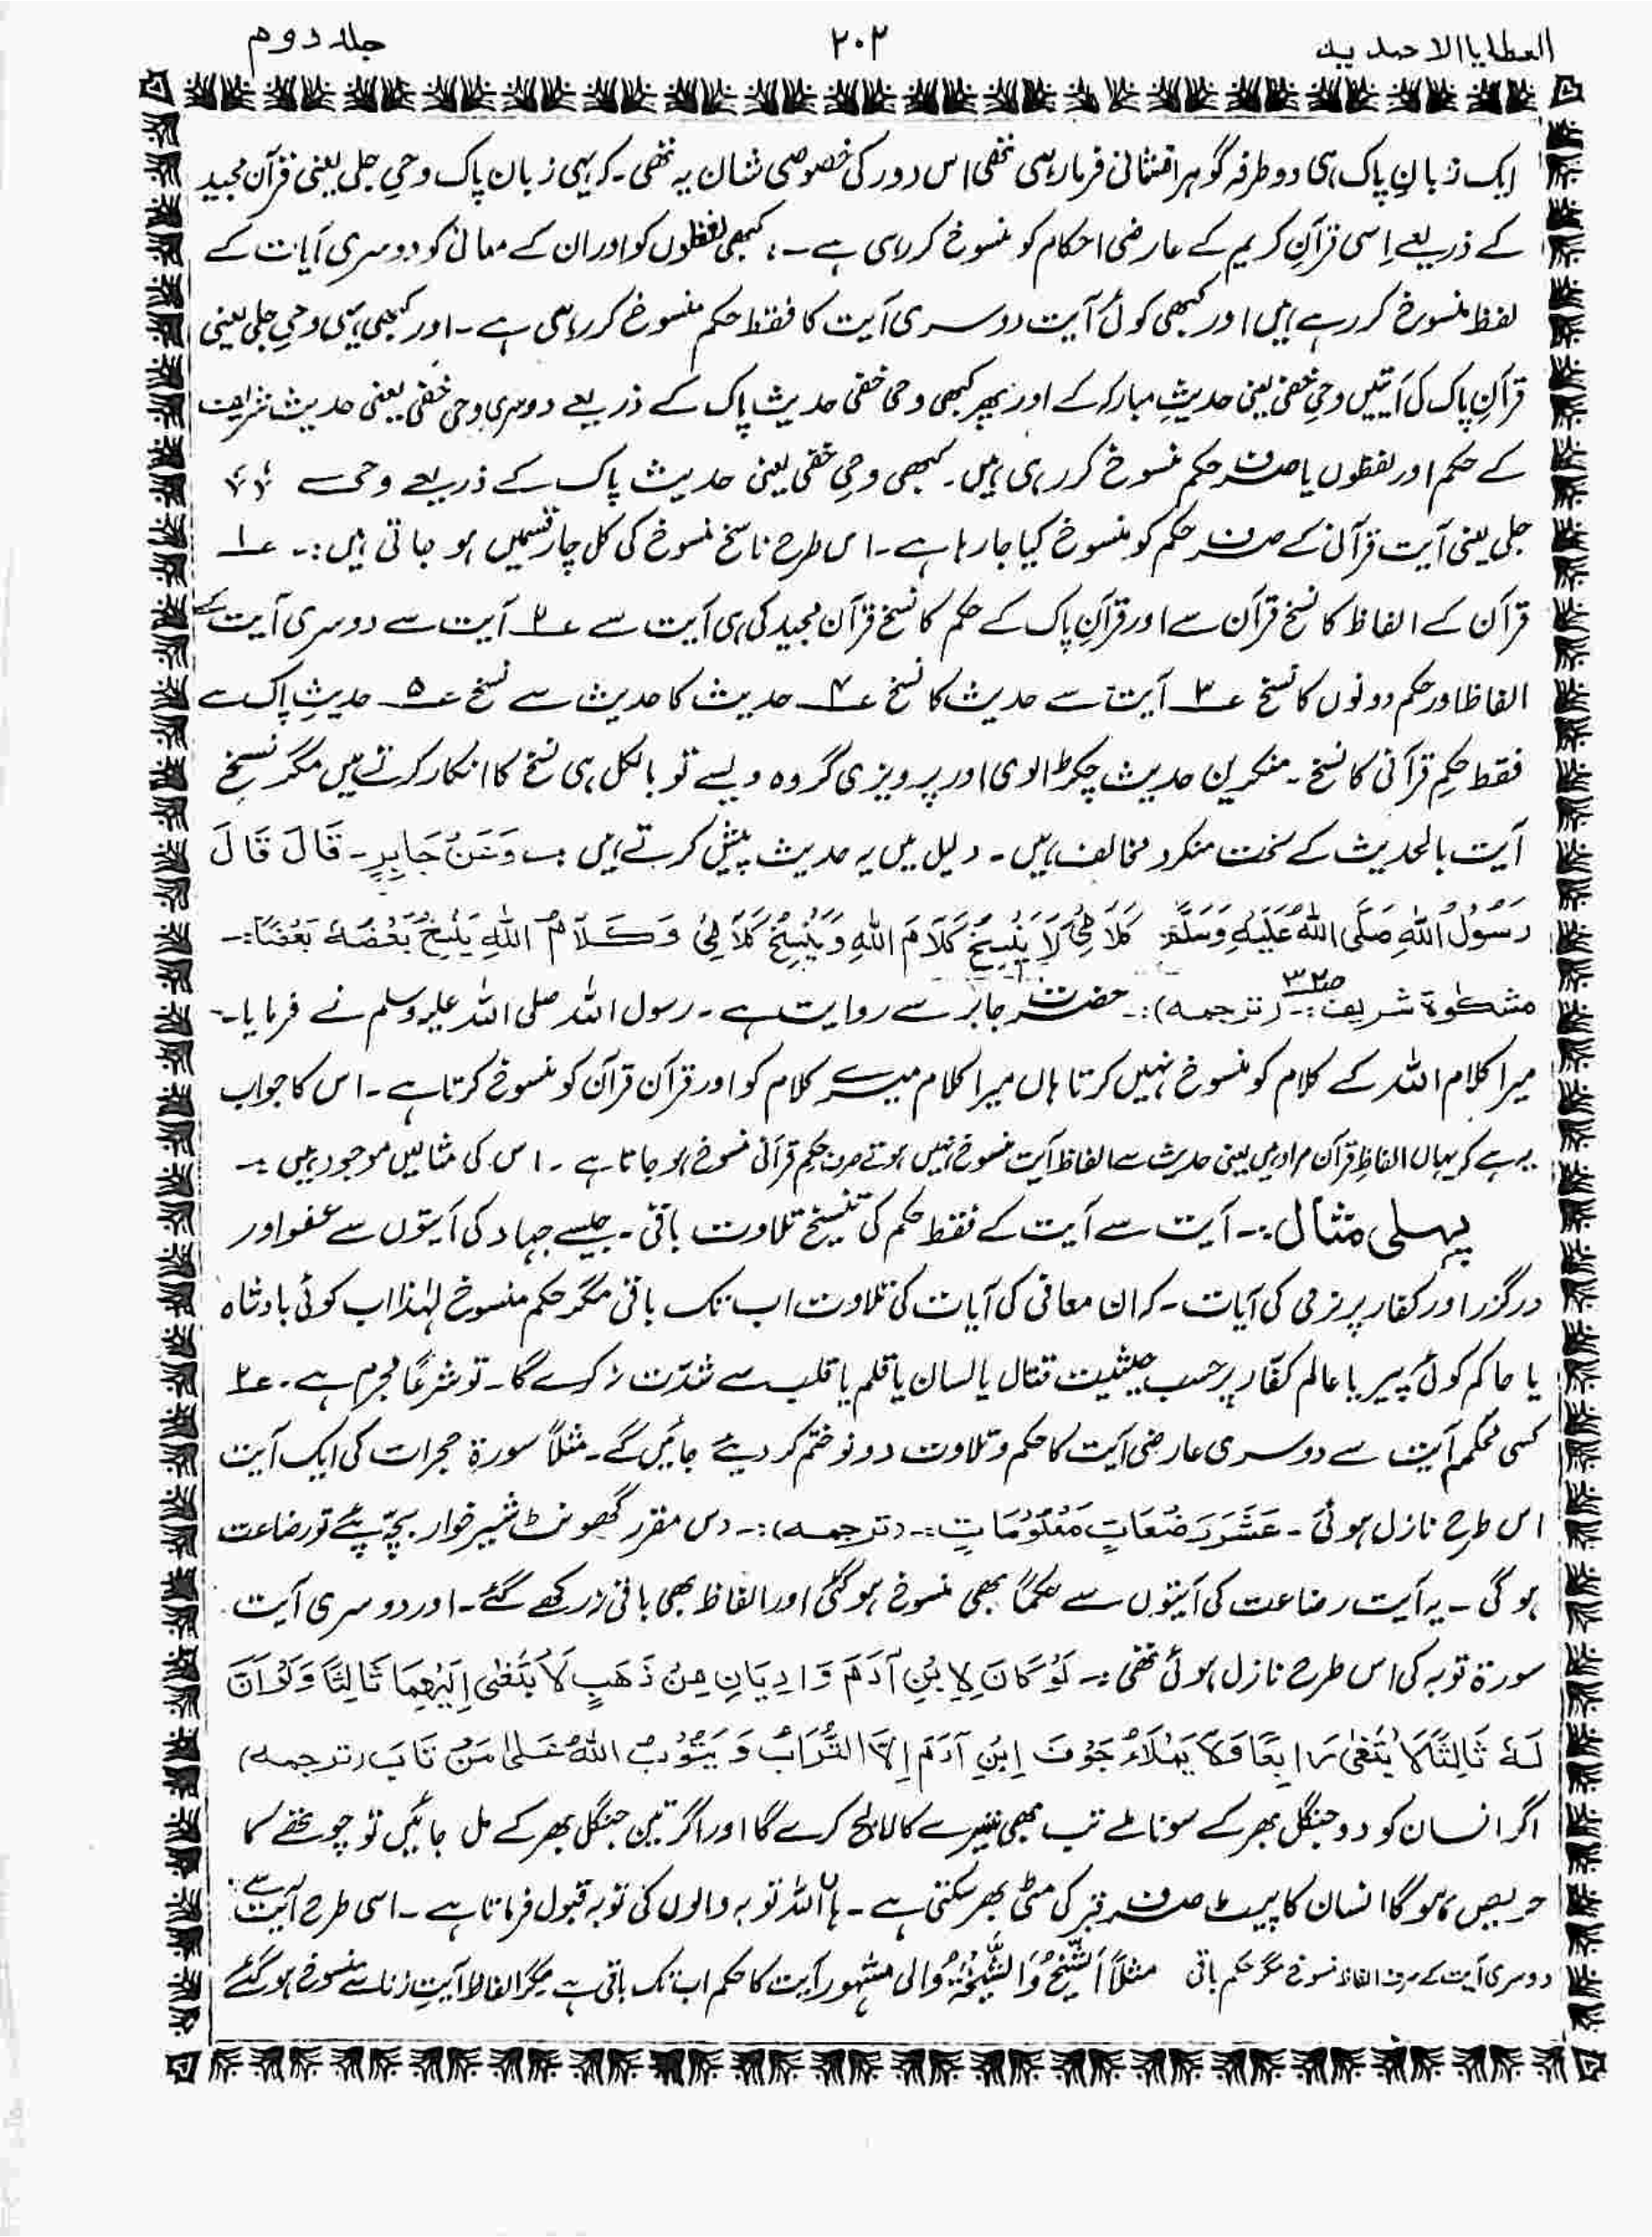 العطایا الاحمدیہ ۲۰۲ جلد دوم
ایک زبانِ پاک ہی دو طرفہ گوہر افشانی فرما رہی تھی اس دور کی خصوصی شان یہ تھی۔ کہ یہی زبان پاک وحیِ جلی یعنی قرآن مجید
کے ذریعے اِسی قرآنِ کریم کے عارضی احکام کو منسوخ کر رہی ہے۔ کبھی لفظوں کو اور ان کے معانی کو دوسری آیات کے
لفظ منسوخ کر رہے ہیں اور کبھی کوئی آیت دوسری آیت کا فقط حکم منسوخ کر رہی ہے۔ اور کبھی یہی وحیِ جلی یعنی
قرآنِ پاک کی آیتیں وحیِ خفی یعنی حدیثِ مبارکہ کے اور پھر کبھی وحی خفی حدیث پاک کے ذریعے دوسری وحی خفی یعنی حدیث شریف
کے حکم اور لفظوں یا صرف حکم منسوخ کر رہی ہیں۔ کبھی وحیِ خفی یعنی حدیث پاک کے ذریعے وحی
جلی یعنی آیت قرآنی کے صرف حکم کو منسوخ کیا جا رہا ہے۔ اس طرح ناسخ منسوخ کی کل چار قسمیں ہو جاتی ہیں:۔ ۱
قرآن کے الفاظ کا نسخ قرآن سے اور قرآنِ پاک کے حکم کا نسخ قرآن مجید کی ہی آیت سے ۲ آیت سے دوسری آیت کے
الفاظ اور حکم دونوں کا نسخ ۳ آیت سے حدیث کا نسخ ۴ حدیث کا حدیث سے نسخ ۵ حدیثِ پاک سے
فقط حکمِ قرآنی کا نسخ۔ منکرین حدیث چکڑالوی اور پرویزی گروہ ویسے تو بالکل ہی نسخ کا انکار کرتے ہیں مگر نسخِ
آیت بالحدیث کے سخت منکر و مخالف ہیں۔ دلیل میں یہ حدیث پیش کرتے ہیں :۔ وَعَنْ جَابِرٍ۔ قَالَ قَالَ
رَسُوْلُ اللهِ صَلَّی اللهُ عَلَیْهِ وَسَلَّمَ کَلَامِیْ لَا یَنْسِخُ کَلَامَ اللهِ وَیَنْسِخُ کَلَامِیْ وَکَلَامُ اللهِ یَنْسِخُ بَعْضُهٗ بَعْضًا:۔
مشکٰوۃ شریف ص۳۲:۔ (ترجمہ):۔ حضرت جابر سے روایت ہے۔ رسول اللہ صلی اللہ علیہ وسلم نے فرمایا۔
میرا کلام اللہ کے کلام کو منسوخ نہیں کرتا ہاں میرا کلام میرے کلام کو اور قرآن قرآن کو منسوخ کرتا ہے۔ اس کا جواب
یہ ہے کہ یہاں الفاظِ قرآن مراد ہیں یعنی حدیث سے الفاظ آیت منسوخ نہیں ہوتے صرف حکمِ قرآنی منسوخ ہو جاتا ہے۔ اس کی مثالیں موجود ہیں:۔
پہلی مثال:۔ آیت سے آیت کے فقط حکم کی تنسیخ تلاوت باقی۔ جیسے جہاد کی آیتوں سے عفو اور
درگزر اور کفار پر نرمی کی آیات۔ کہ ان معافی کی آیات کی تلاوت اب تک باقی مگر حکم منسوخ لہٰذا اب کوئی بادشاہ
یا حاکم کوئی پیر یا عالم کفّار پر حسب حیثیت قتال یا لسان یا قلم یا قلب سے شدّت نہ کرے گا۔ تو شرعًا مجرم ہے۔ ۲
کسی محکم آیت سے دوسری عارضی آیت کا حکم و تلاوت دونو ختم کر دیئے جائیں گے۔ مثلاً سورۃ حجرات کی ایک آیت
اس طرح نازل ہوئی۔ عَشَرَ رَضْعَاتٍ مَعْلُوْمَاتٍ:۔ (ترجمہ):۔ دس مقرر گھونٹ شیر خوار بچّہ پئے تو رضاعت
ہو گی۔ یہ آیت رضاعت کی آیتوں سے حکمًا بھی منسوخ ہو گئی اور الفاظ بھی باقی نہ رکھے گئے۔ اور دوسری آیت
سورۃ توبہ کی اس طرح نازل ہوئی تھی:۔ لَوْ کَانَ لِاِبْنِ آدَمَ وَادِیَانِ مِنْ ذَهَبٍ لَا بْتَغٰی اِلَیْهِمَا ثَالِثًا وَلَوْ اَنَّ
لَهٗ ثَالِثًا لَا بْتَغٰی رَابِعًا وَلَا یَمْلَاءُ جَوْفَ اِبْنِ آدَمَ اِلَّا التُّرَابُ وَیَتُوْبُ اللهُ عَلٰی مَنْ تَابَ (ترجمہ)
اگر انسان کو دو جنگل بھر کے سونا ملے تب بھی تیسرے کا لالچ کرے گا اور اگر تین جنگل بھر کے مل جائیں تو چوتھے کا
حریص ہو گا انسان کا پیٹ صرف قبر کی مٹی بھر سکتی ہے۔ ہاں اللہ توبہ والوں کی توبہ قبول فرماتا ہے۔ اسی طرح آیت سے
دوسری آیت کے صرف الفاظ منسوخ مگر حکم باقی مثلاً اَلشَّیْخُ وَالشَّیْخَۃُ والی مشہور آیت کا حکم اب تک باقی ہے مگر الفاظ آیتِ زنا سے منسوخ ہو گئے